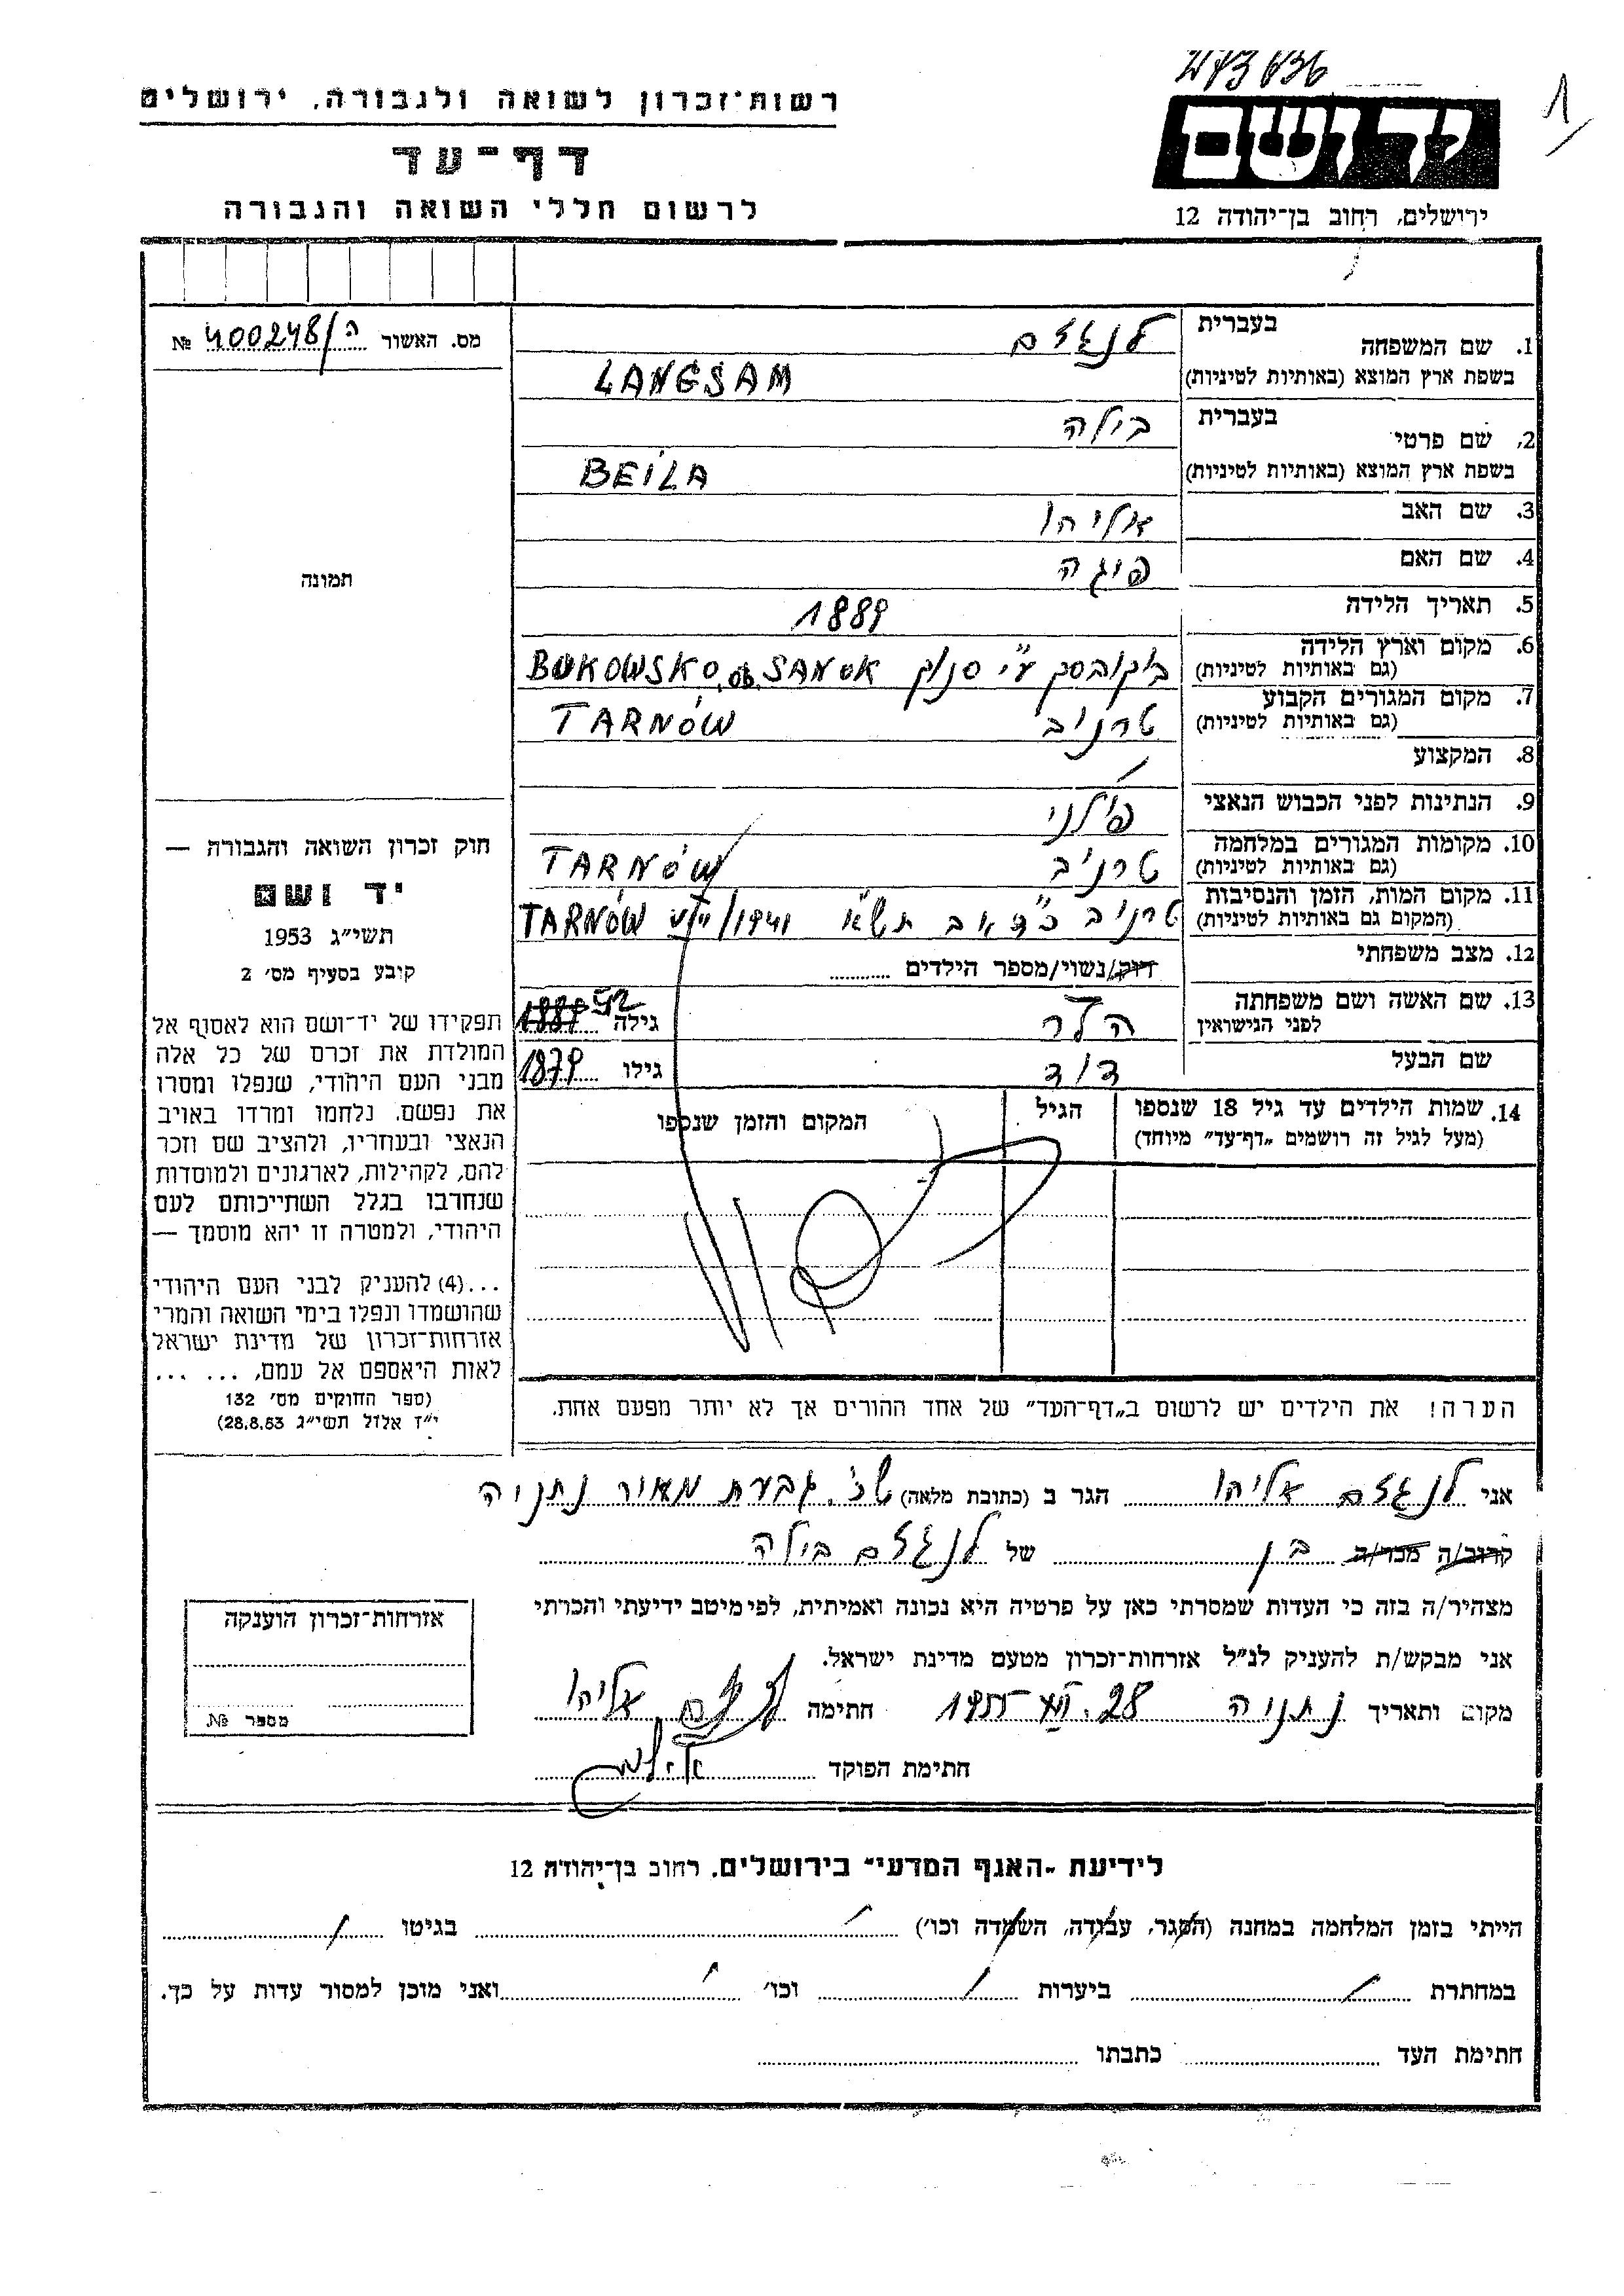 רשות־זכרון לשואה ולגבורה, ירושלים
דף־עד
לרשום חללי השואה והגבורה
1
יד ושם
ירושלים, רחוב בן־יהודה 12
מס. האשור 400248/ה №
1. שם המשפחה בעברית לנגזם
בשפת ארץ המוצא (באותיות לטיניות) LANGSAM
2. שם פרטי בעברית בילה
בשפת ארץ המוצא (באותיות לטיניות) BEILA
3. שם האב אליהו
4. שם האם פיגה
5. תאריך הלידה 1889
6. מקום וארץ הלידה (גם באותיות לטיניות) בוקובסק ע"י סנוק BUKOWSKO ob. SANOK
7. מקום המגורים הקבוע (גם באותיות לטיניות) טרניב TARNÓW
8. המקצוע
9. הנתינות לפני הכבוש הנאצי פולני
10. מקומות המגורים במלחמה (גם באותיות לטיניות) טרניב TARNÓW
11. מקום המות, הזמן והנסיבות (המקום גם באותיות לטיניות) טרניב אב TARNÓW
12. מצב משפחתי רווק/נשוי/מספר הילדים
13. שם האשה ושם משפחתה לפני הנישואין הלר גילה 1889 52
שם הבעל דוד גילו 1879
14. שמות הילדים עד גיל 18 שנספו (מעל לגיל זה רושמים „דף־עד" מיוחד) הגיל המקום והזמן שנספו
תמונה
חוק זכרון השואה והגבורה —
יד ושם
תשי"ג 1953
קובע בסעיף מס' 2
תפקידו של יד־ושם הוא לאסוף אל
המולדת את זכרם של כל אלה
מבני העם היהודי, שנפלו ומסרו
את נפשם, נלחמו ומרדו באויב
הנאצי ובעוזריו, ולהציב שם וזכר
להם, לקהילות, לארגונים ולמוסדות
שנחרבו בגלל השתייכותם לעם
היהודי, ולמטרה זו יהא מוסמך —
...(4) להעניק לבני העם היהודי
שהושמדו ונפלו בימי השואה והמרי
אזרחות־זכרון של מדינת ישראל
לאות היאספם אל עמם, ... ...
(ספר החוקים מס' 132
י"ז אלול תשי"ג 28.8.53)
הערה! את הילדים יש לרשום ב„דף־העד" של אחד ההורים אך לא יותר מפעם אחת.
אני לנגזם אליהו הגר ב (כתובת מלאה) שכ'. גבעת מאיר נתניה
קרוב/ה מכר/ה בן של לנגזם בילה
מצהיר/ה בזה כי העדות שמסרתי כאן על פרטיה היא נכונה ואמיתית, לפי מיטב ידיעתי והכרתי
אני מבקש/ת להעניק לנ"ל אזרחות־זכרון מטעם מדינת ישראל.
מקום ותאריך נתניה 28. חתימה לנגזם אליהו
חתימת הפוקד
אזרחות־זכרון הוענקה
מספר №
לידיעת „האגף המדעי" בירושלים, רחוב בן־יהודה 12
הייתי בזמן המלחמה במחנה (הסגר, עבודה, השמדה וכו') בגיטו
במחתרת ביערות וכו' ואני מוכן למסור עדות על כך.
חתימת העד כתבתו